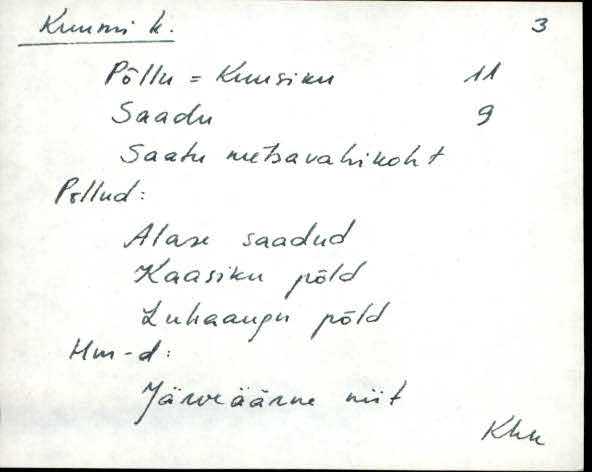 Kuusmi k. 3
Põllu = Kuusiku 11
Saadu 9
Saatu metsavahikoht
Põllud:
Alase saadud
Kaasiku põld
Luhaangu põld
Hm-d:
Järveäärne niit
Khk